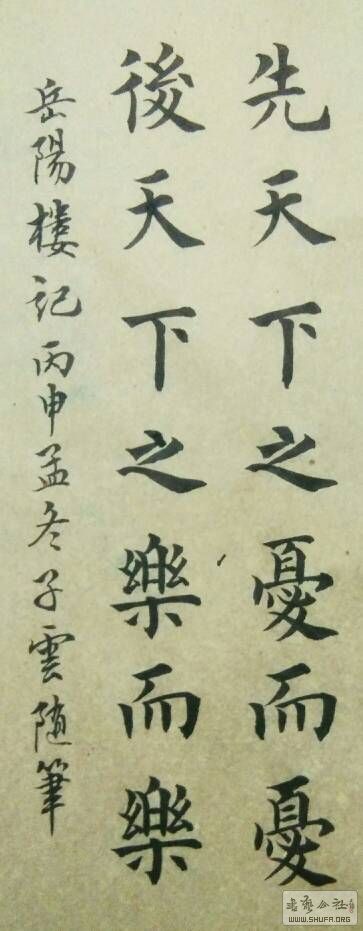 先天下之憂而憂
後天下之樂而樂
岳陽樓記丙申孟冬子雲随筆
書藝公社
WWW.SHUFA.ORG